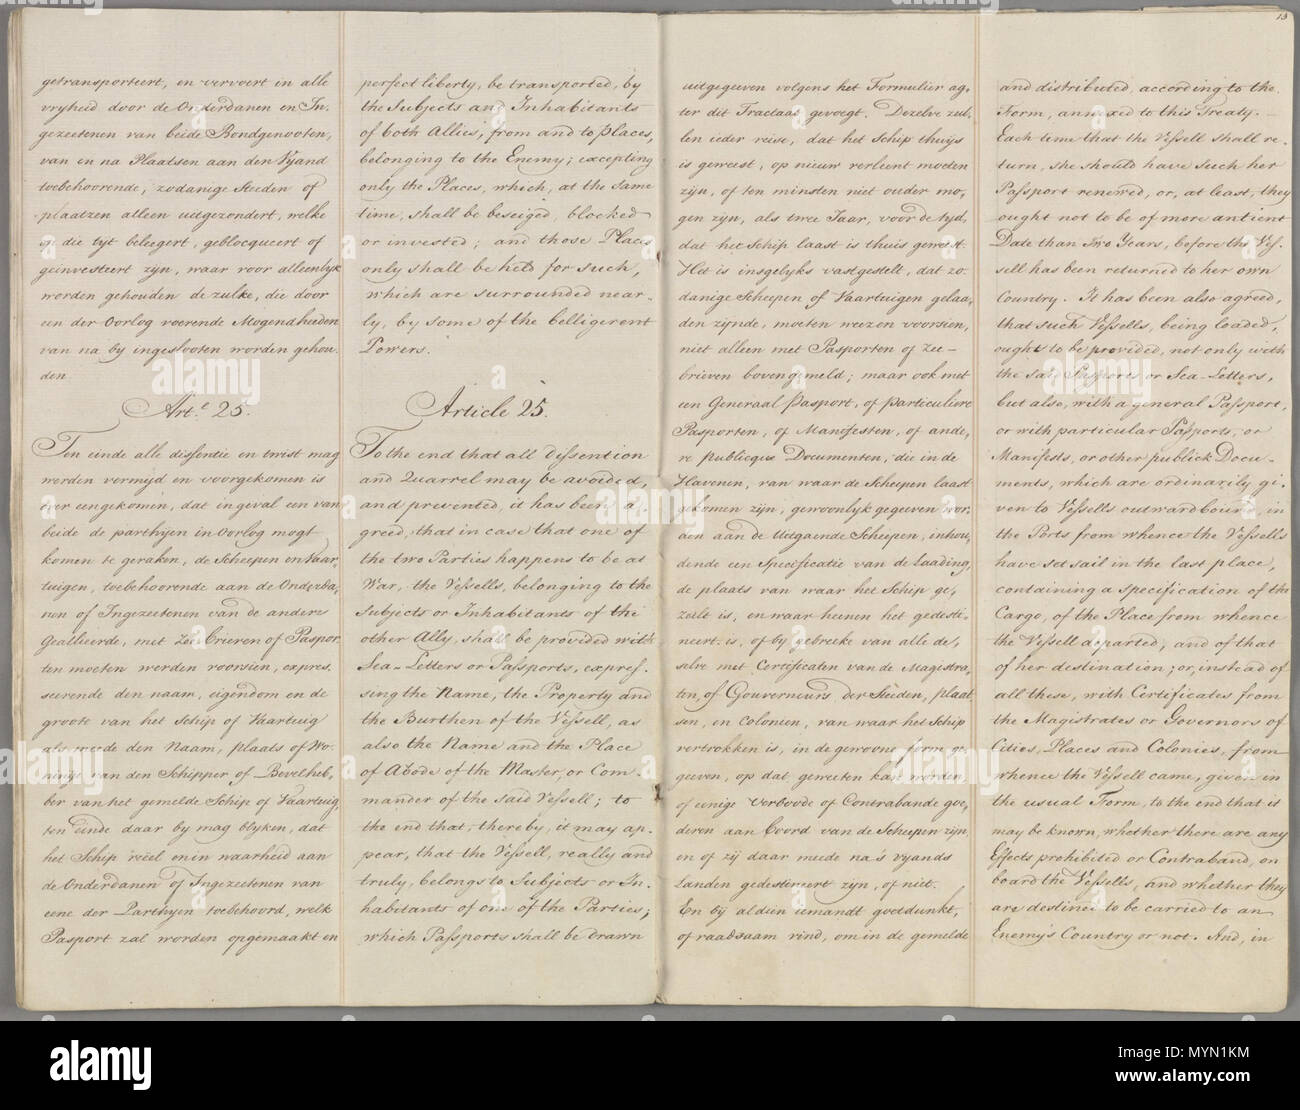 getransporteert, en vervoert in alle
vryheid door de Onderdanen en In,
gezeetenen van beide Bondgenooten,
van en na Plaatsen aan den Vyand
toebehoorende, zodanige Steden of
plaatzen alleen uitgezondert, welke
op die tyt beleegert, geblocqueert of
geinvesteert zyn, waar voor alleenlyk
worden gehouden de zulke, die door
een der Oorlog voerende Mogendheeden
van na by ingeslooten worden gehou,
den
Art.^l 25.
Ten einde alle dissentie en twist mag
werden vermyd en voorgekomen is
over eengekomen, dat ingeval een van
beide de parthyen in Oorlog mogt
komen te geraken, de Scheepen en Vaar,
tuigen, toebehoorende aan de Onderda,
nen of Ingezeetenen van de andere
Geallieerde, met Zee-brieven of Paspor,
ten moeten werden voorsien, expres,
seerende den naam, eigendom en de
groote van het Schip of Vaartuig
als meede den Naam, plaats of Wo,
ninge van den Schipper of Bevelheb,
ber van het gemelde Schip of Vaartuig,
ten einde daar by mag blyken, dat
het Schip reeel en in naarheid aan
de Onderdanen of Ingezeetenen van
eene der Parthyen toebehoord, welk
Pasport zal worden opgemaakt en
perfect liberty, be transported, by
the Subjects and Inhabitants
of both Allies, from and to places,
belonging to the Enemy; excepting
only the Places, which, at the same
time, shall be beseiged, blocked
or invested; and those Places
only shall be held for such,
which are surrounded near-
ly, by some of the belligerent
Powers.
Article 25.
To the end that all dissention
and Quarrel may be avoided,
and prevented, it has been a,
greed, that in case that one of
the two Parties happens to be at
War, the Vessells, belonging to the
Subjects or Inhabitants of the
other Ally, shall be provided with
Sea-Letters or Passports, expres-
sing the Name, the Property and
the Burthen of the Vessell, as
also the Name and the Place
of Abode of the Master, or Com-
mander of the said Vessell; to
the end that, thereby, it may ap-
pear, that the Vessell, really and
truly, belongs to Subjects or In-
habitants of one of the Parties;
which Passports shall be drawn
uitgegeven volgens het Formulier ag,
ter dit Tractaat gevoegt. Dezelve zul,
len ieder reise, dat het Schip thuys
is geweest, op nieuw verleent moeten
zyn, of ten minsten niet ouder mo,
gen zyn, als twee Jaar, voor de tyd,
dat het Schip laast is thuis geweest.
Het is insgelyks vastgestelt, dat zo,
danige Scheepen of Vaartuigen gelaa,
den zynde, moeten weezen voorsien,
niet alleen met Pasporten of zee-
brieven bovengemeld; maar ook met
een Generaal Pasport, of particuliere
Pasporten, of Manifesten, of ande,
re publieque Documenten, die in de
Havenen, van waar de Scheepen laast
gekomen zyn, gewoonlyk gegeven wor,
den aan de Uitgaende Scheepen, inhou,
dende een Specificatie van de Laading,
de plaats van waar het Schip ge,
zeilt is, en waar heenen het gedesti,
neert is, of by gebreeke van alle de,
selve met Certificaten van de Magistra,
ten, of Gouverneurs der Steden, plaat
sen, en Colonien, van waar het Schip
vertrokken is, in de gewoone form ge,
geeven, op dat geweeten kan worden,
of eenige verboode of Contrabande goe,
deren aan boord van de Scheepen zyn,
en of zy daar meede na's vyands
Landen gedestineert zyn, of niet.
En by aldien iemandt goetdunkt,
of raadsaam vind, om in de gemelde
13
and distributed, according to the
Form, annexed to this Treaty.-
Each time that the Vessell shall re-
turn, she should have such her
Passport renewed, or, at least, they
ought not to be of more antient
Date than Two Years, before the Ves-
sell has been returned to her own
Country. It has been also agreed,
that such Vessells, being loaded,
ought to be provided, not only with
the said Passports or Sea-Letters,
but also, with a general Passport,
or with particular Passports, or
Manifests, or other publick Docu-
ments, which are ordinarily gi-
ven to Vessells outward bound, in
the Ports from whence the Vessells
have set sail in the last place,
containing a specification of the
Cargo, of the Place from whence
the Vessell departed, and of that
of her destination; or, instead of
all these, with Certificates from
the Magistrates or Governors of
Cities, Places and Colonies, from
whence the Vessell came, given in
the usual Form, to the end that it
may be known, whether there are any
Effects prohibited or Contraband, on
board the Vessells, and whether they
are destined to be carried to an
Enemy's Country or not. And, in
alamy
Image ID: MYN1KM
www.alamy.com